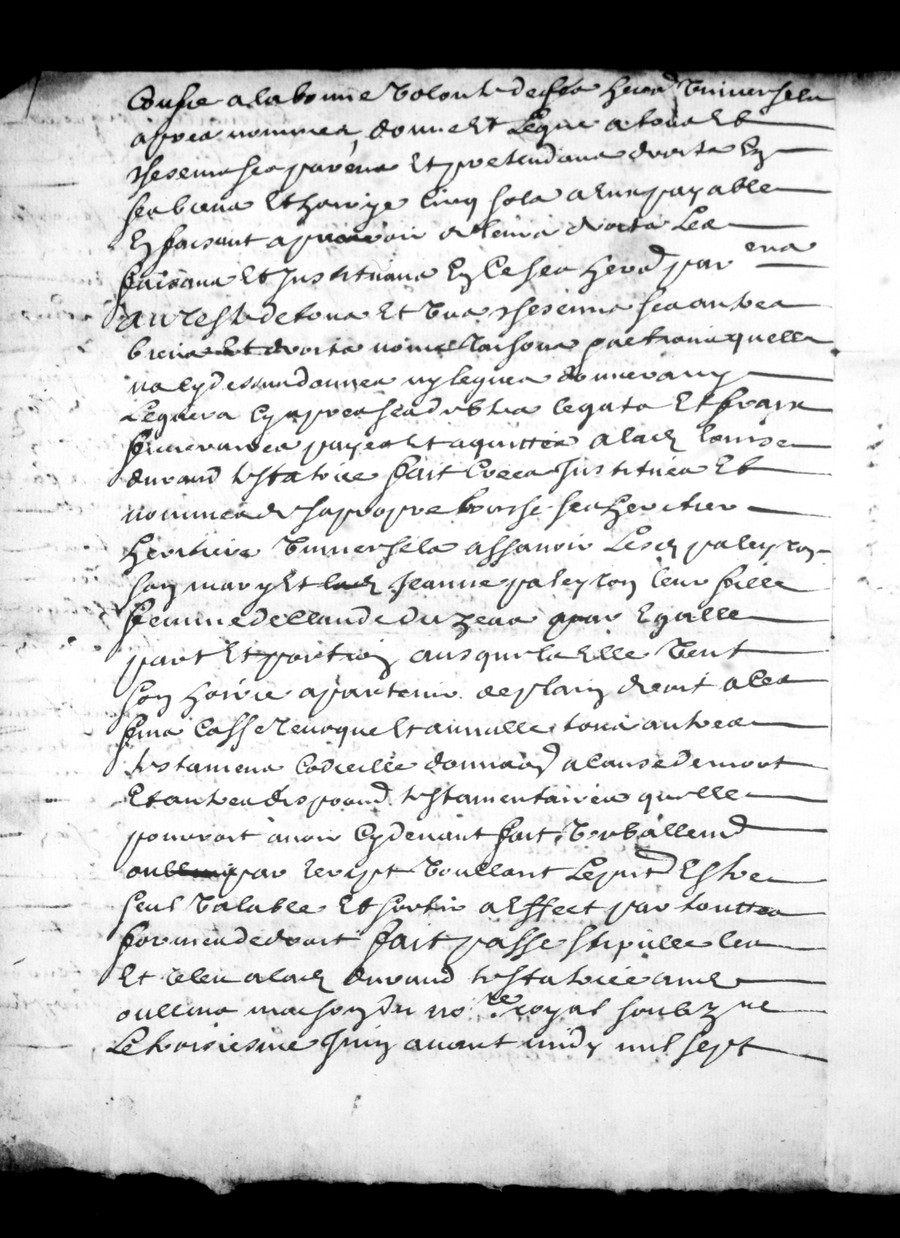 Confie a la bonne volonté de ses herd universels
apres nommes, donne et legue a tous et
chescuns ses parens et pretendans droits en
ses biens et hoirye cinq sols a eux payable
en faisant apparoir de leurs droits les
faisans et instituans en ce ses herd par ens
au reste de tous et uns chescuns ses autres
biens et droits noms raisons actions quelle
na cy dessus donnes ny legues donnera ny
leguera cy apres ses debtes legats et frais
funeraires payes et aquittes a lad louise
durand testatrice fait crees institues et
nommes de sa propre bouche ses heritier
heritiere universels assavoir lesd paleyron
son mary et lad Jeanne paleyron leur fille
femme de llaude duzeas par egalle
part et portion ausquels elle veut
son hoirie apartenir de plain droit a les
fins casse revoque et annulle tous autres
testamens codicille donnaõn a cause de mort
et autres dispoons testamentaires quelle
pourroit avoir cy devant fait verballemt
ou par escript voullant le pnt estre
seul valable et sortir a effect par touttes
formes de droit fait passe stipulle leu
et releu a lad durand testatrice
oullins maison du nore royal soubzne
le troisiesme Juin avant midy mil sept